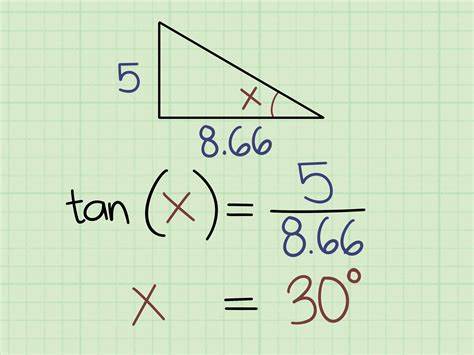 5
x
8.66
tan (x) = 5/8.66
x = 30°